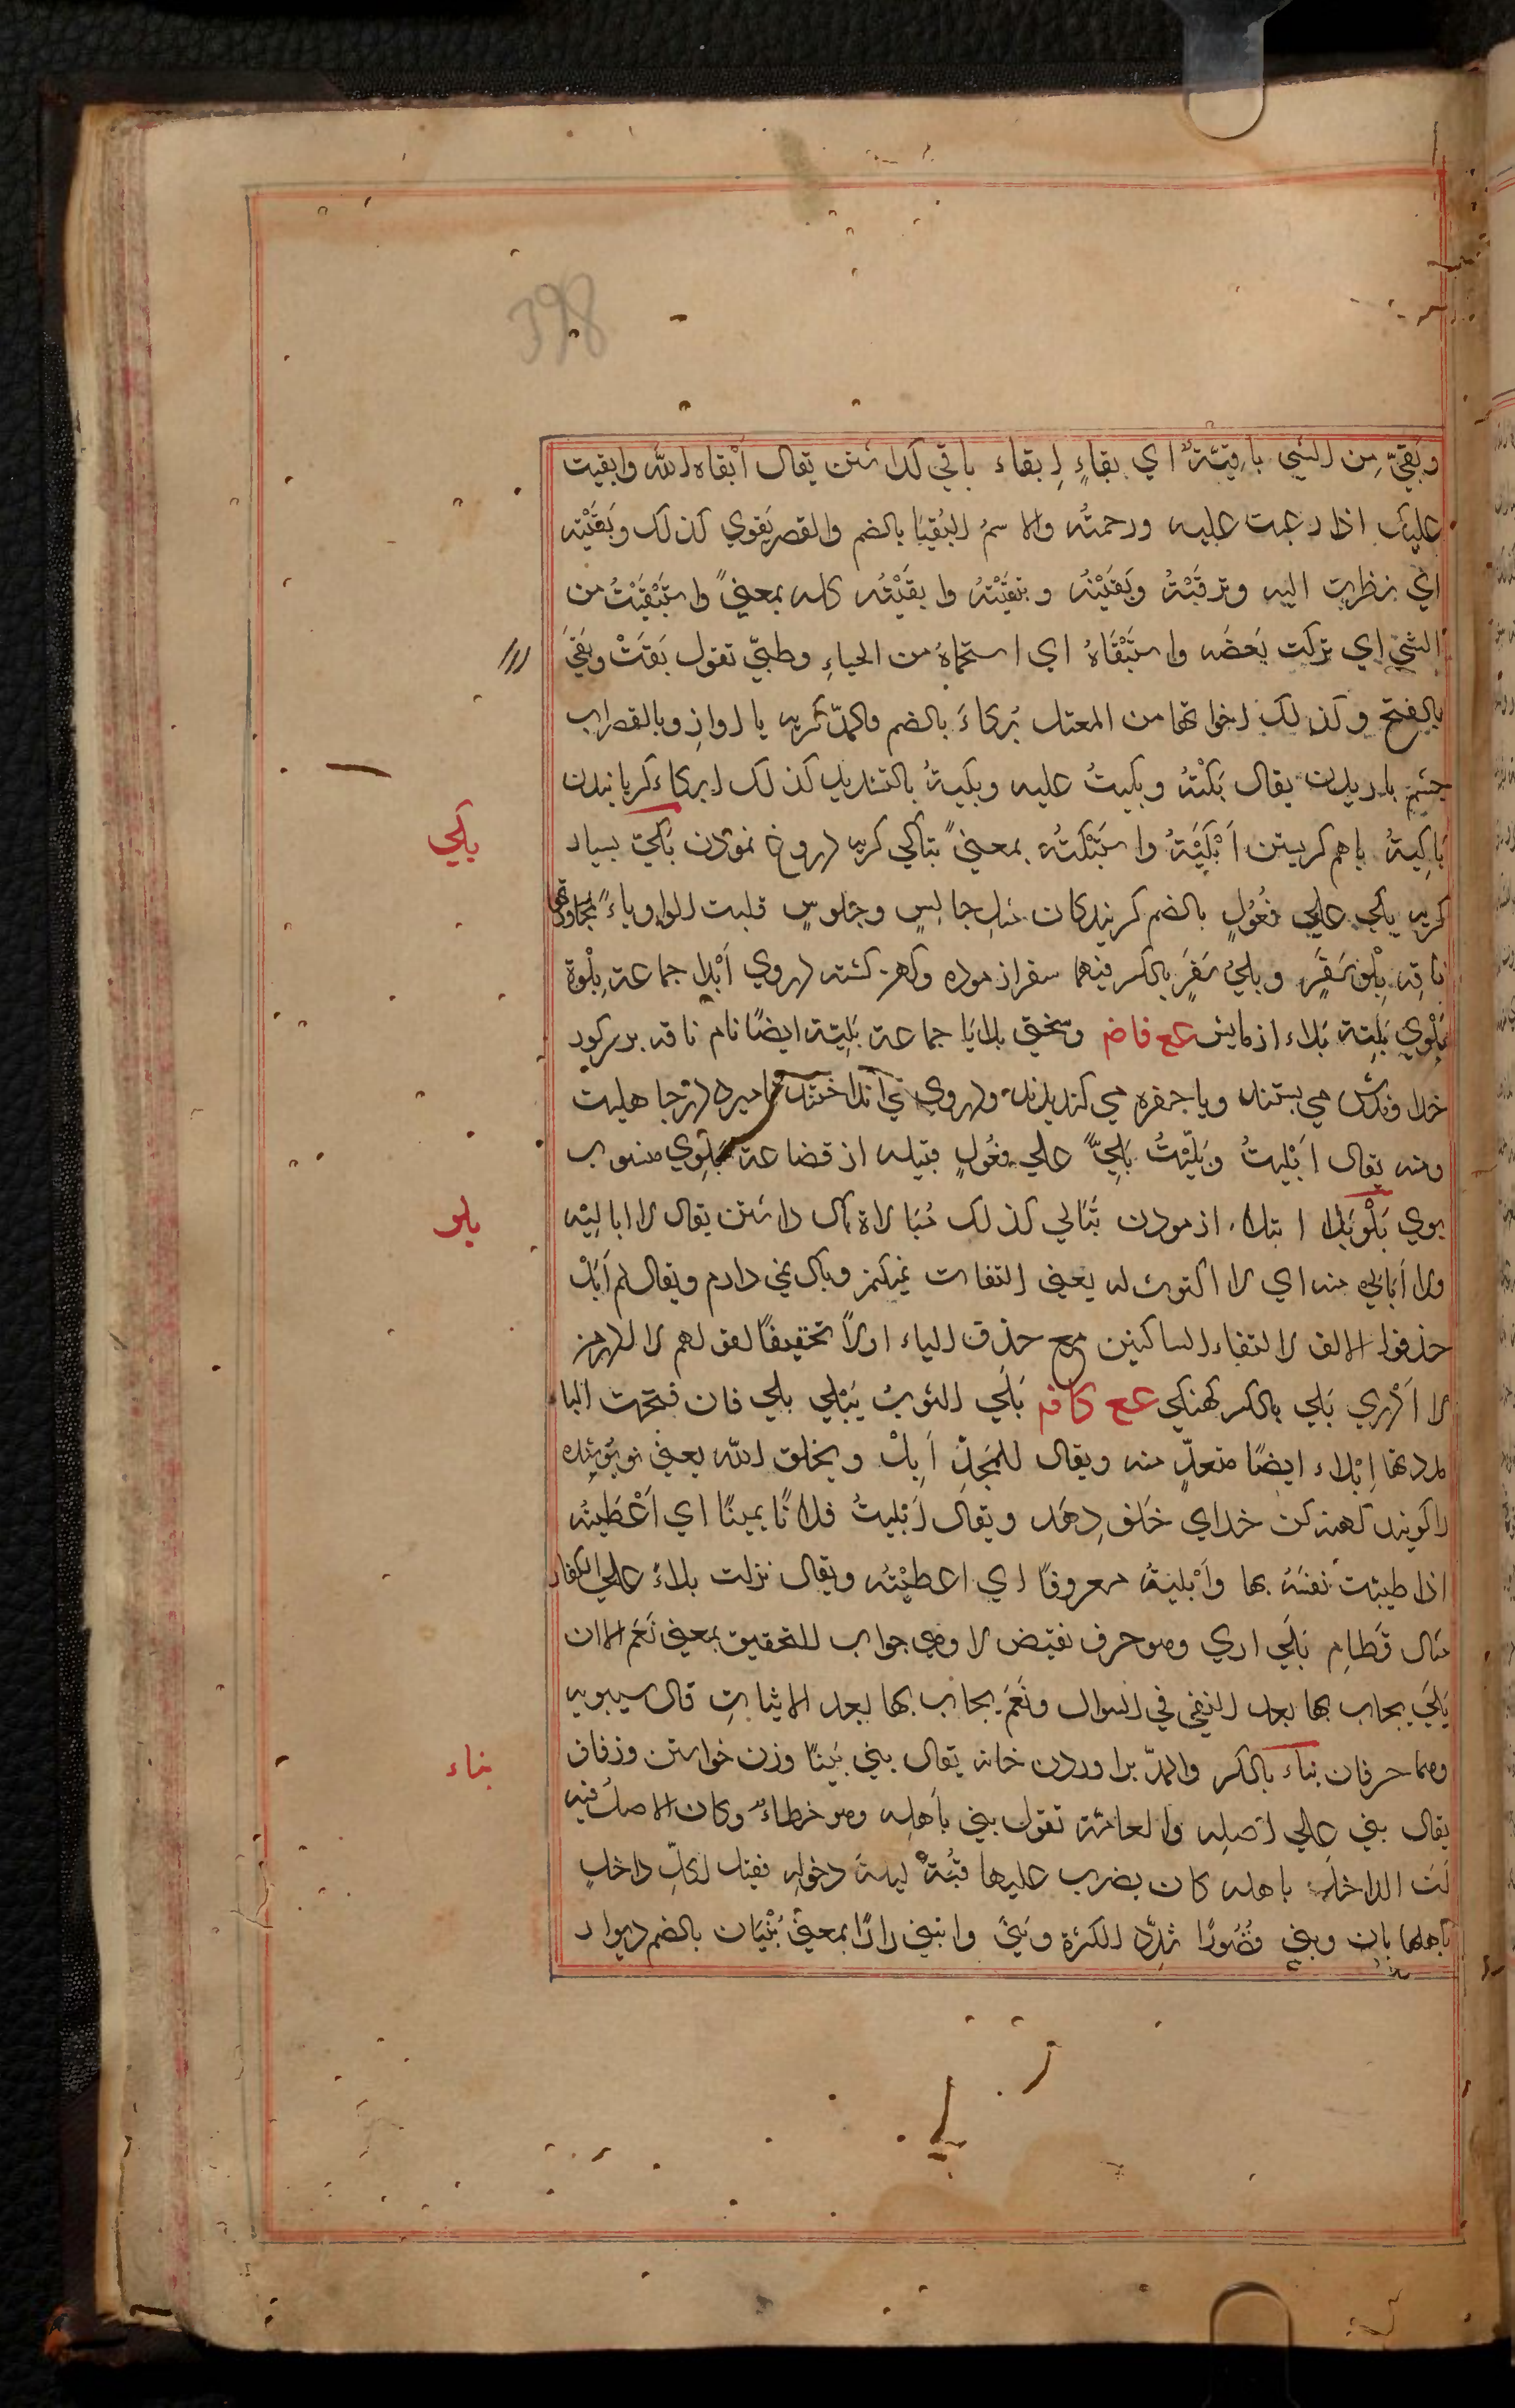 398
وبَقيَ مِن الشي باقِيَةٌ اي بقاءٍ اِبقاء باقي كذاشتن يقال اَبْقاه الله وابقيت
عليك اذا رعيت عليه ورحمتُه والاسمُ البُقْيَا بالضم والقصر بَقوي كذلك وبَقَيْته
اي نظرت اليه وترقَبْتُهُ وبَقَيْتُه وتبقَيْتُهُ وابقَيْتُه كله بمعنيً واستَبْقَيْتُ من
الشئ اي تركت بَعضَه واستَبْقَاهُ اي استحياهُ من الحياءِ وطيئ تقول بَقَتْ وبَقَي
بالفتح وكذلك اخواتها من المعتل بُكاءَ بالضم والمدّ كريه با اواز وبالقصر اب
چشم باريدن يقال بَكيْتهُ وبكيتُ عليه وبكيتهُ بالتشديد كذلك ابكاء كريانيدن
بَاكيتهُ باهم كريستن اَبْكَيْتهُ واستَبْكَتُه بمعنيً تباكي كريه دروغ نمودن بَكيّ بسيار
بكي
كريه بكي علي فعُولٍ بالضم كريندكان مثلِ جالِسٍ وجلوسٍ قلبت الواو ياءً
ناقه بِلْو سَفَرٍ وبليُ سَفَرٍ بالكسر فيهما سفر ازموده وكهن كشته دروي اَبْلا جماعة بِلْوة
بَلْوي بَلِيّة بَلاء ازمايش عع فاضہ وسختي بلايَا جماعة بَلِيّة ايضًا نام ناقه بر سر كور
خداوندش مي بستند ويا حفره مي كنديدند ودروي مي انداختند تا ميرد در جاهليت
ومنه يقال اَبْليتُ وبَلَّيْتُ بَلِيّ علي فعُولٍ قبيله از قضاعة بَلَوي منسوب
بوي بَلْو بَلا ابتلاء ازمودن تُبَالي كذلك مُبَالاة باك داشتن يقال لا اباليْه
بلو
ولا اُبالي منه اي لا اكترث له يعني التفات نميكنم وباك نمي دارم ويقال لم اُبَلْ
حذفوا الالف لالتقاء الساكنين مع حذف الياء اولاً تخفيفًا لقولهم لا
لا اَدْري بَلي بالكسر كهنكي عع كافہ بَلَي الثوبُ يَبْلي بلي فان فتحت الباء
مددتها اِبْلاء ايضًا متعدٍّ منه ويقال للمُجِدّ اَبِلْ ويخلق الله يعني نو پوشنده
را كويند كهنه كن خداي خلف دِهَد ويقال اَبْليتُ فلانًا يمينًا اي اَعْطَيتُه
اذا طيبْت نفسَهُ بها واَبْليتهُ معروفًا اي اعطَيْتُه ويقال نزلت بلاءً علي الكفار
مثال قَطامِ بَلَي اري وهو حرف نقيض لا وهي جواب للتحقيق بمعني نَعَم الا ان
بَلَيَ يجاب بها بعد النفي في السوال ونَعَم يجاب بها بعد الاثباتِ قال سيبويه
وهما حرفان بناء بالكسر والمدّ براوردن خانه يقال بني بَيتًا وزن خواستن وزفاف
بناء
يقال بني علي اَهلِه والعامّة تقول بني بأهلِه وهو خطاءٌ وكان الاصلُ فيه
انّ الداخلَ باهله كان يضرب عليها قُبّةً ليلةَ دخولِه فقيل لكلِّ داخلٍ
بأهلها بانٍ وبني قُصُورًا شدّد للكثرة وبَنيَ وابتني دارًا بمعنيً بُنْيَان بالضم ديوار